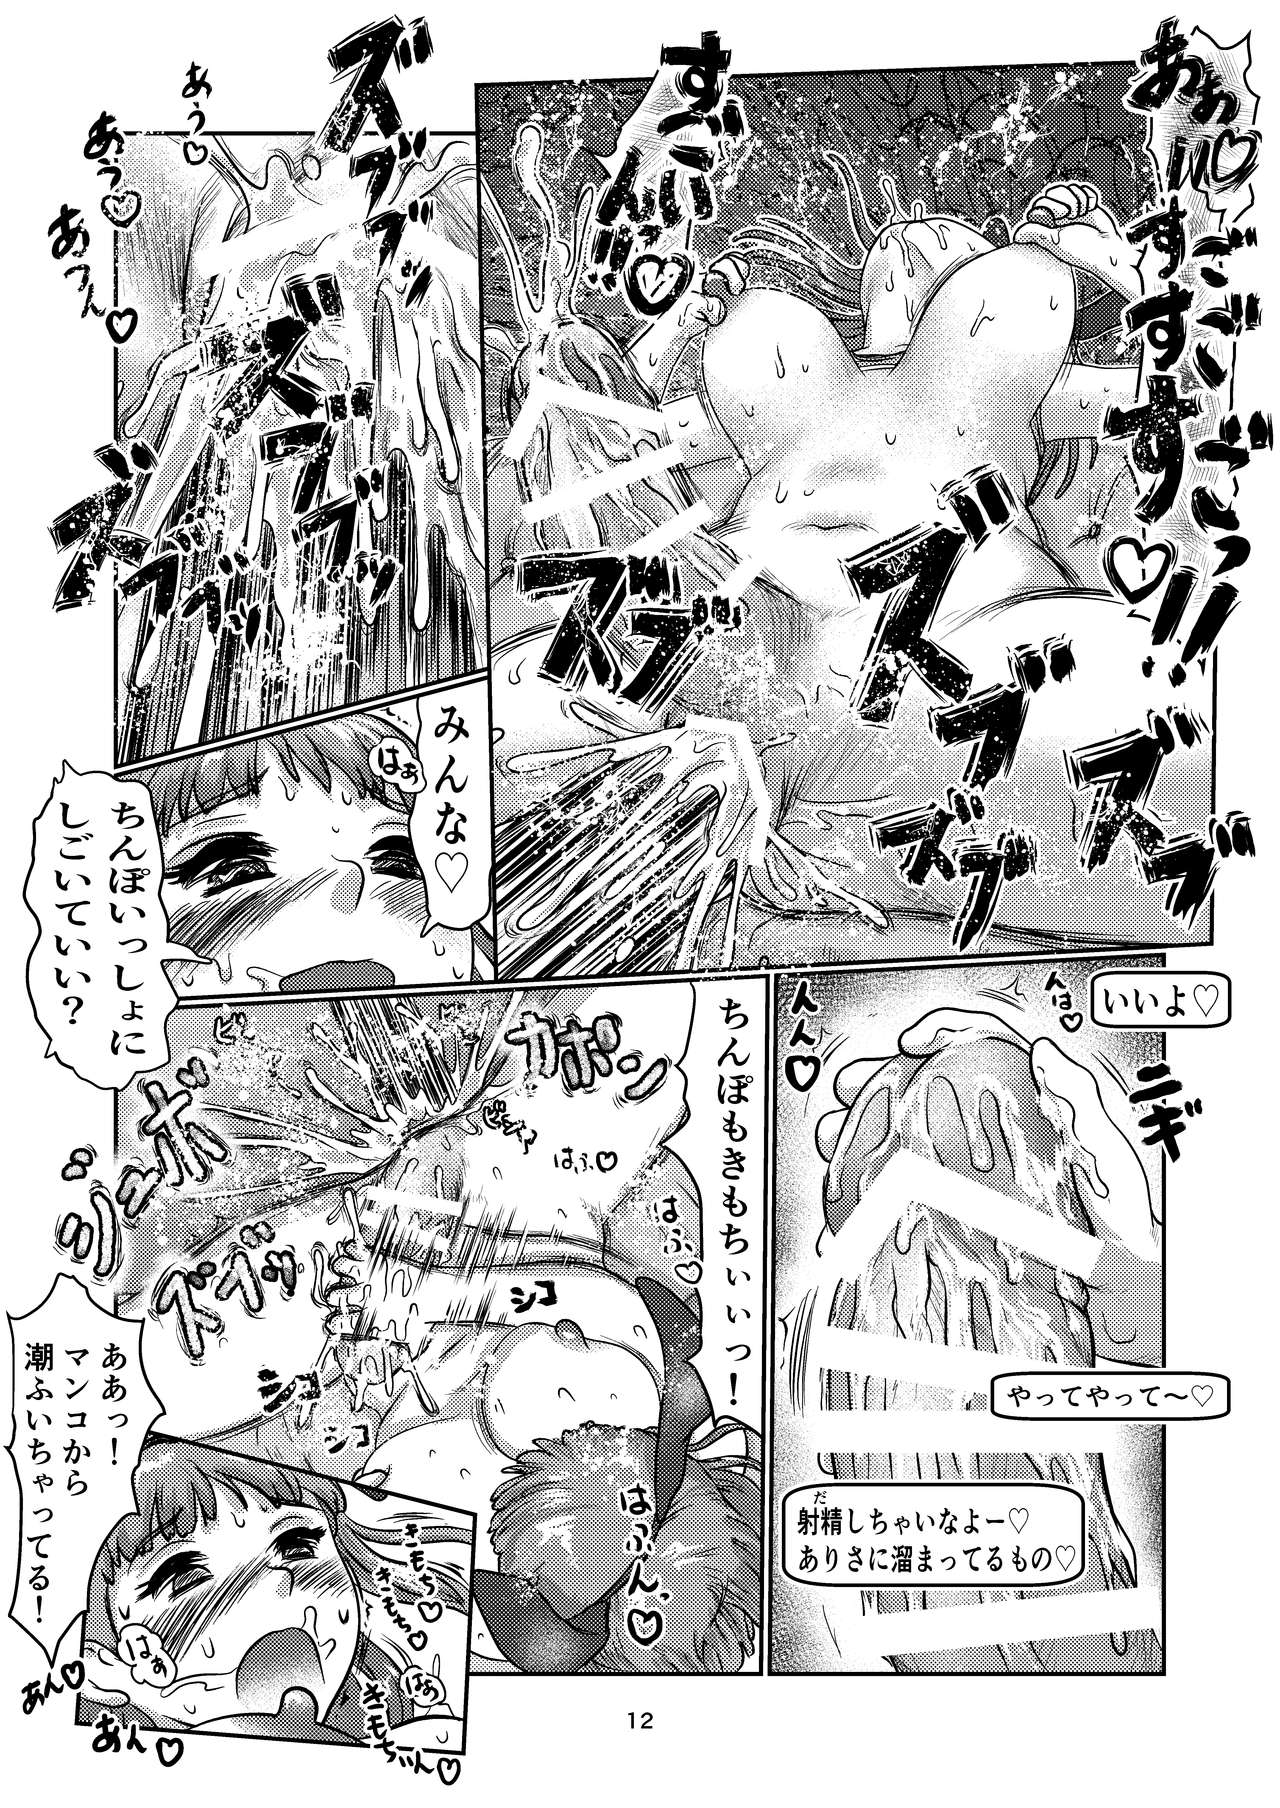 ああ♡
すごいすごすぎるぅ
すっ
ごい
いん♡
ズブ
ズブ
ズブ
ズブ
ズブ
ズズ
ズブ
ズブ
あう♡
あう♡
あうん♡
みんな♡
はぁ
ちんぽいっしょに
しごいていい?
いいよ♡
んは♡
んん♡
ニギ
やってやって~♡
射精しちゃいなよー♡
だ
ありさに溜まってるもの♡
ちんぽもきもちぃぃっ!
カポン
ジュボボ
ズブブッ
はふ♡
はふ♡
はふん♡
シコ
シコ
シコ
ああっ!
マンコから
潮ふいちゃってる!
きもち♡
きもち♡
きもちいん♡
はぁ
はぁ
あん♡
あん♡
12